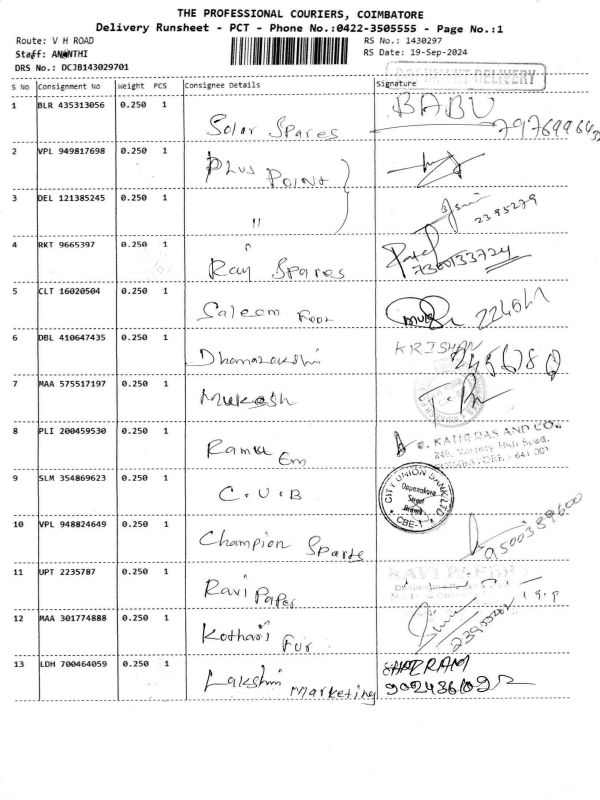 THE PROFESSIONAL COURIERS, COIMBATORE
Delivery Runsheet - PCT - Phone No.:0422-3505555 - Page No.:1
Route: V H ROAD RS No.: 1430297
Staff: ANONTHI RS Date: 19-Sep-2024
DRS No.: DCJB143029701
DOCUMENT DELIVERY
S No Consignment No Weight PCS Consignee Details Signature
1 BLR 435313056 0.250 1 Solar Spares BABU
2 VPL 949817698 0.250 1 Plus Point
3 DEL 121385245 0.250 1 " 2395279
4 RKT 9665397 0.250 1 Raj Spares Patel
5 CLT 16020504 0.250 1 Saleem
6 DBL 410647435 0.250 1 KRISHAN
7 MAA 575517197 0.250 1 Mukesh
8 PLI 200459530 0.250 1 Ramu Em AND CO.
641 001
9 SLM 354869623 0.250 1 C.U.B CITY UNION BANK LTD
Street
CBE-1
10 VPL 948824649 0.250 1 Champion Spares 9500389600
11 UPT 2235787 0.250 1 Ravi Paper RAVI PAPERS
12 MAA 301774888 0.250 1 Kothari Fur
13 LDH 700464059 0.250 1 Lakshmi Marketing